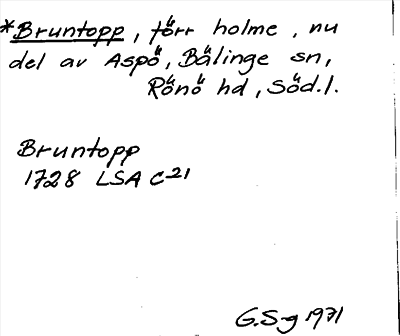 *Bruntopp, förr holme, nu
del av Aspö, Bälinge sn,
Rönö hd, Söd.l.
Bruntopp
1728 LSA C21
G.S-g 1971